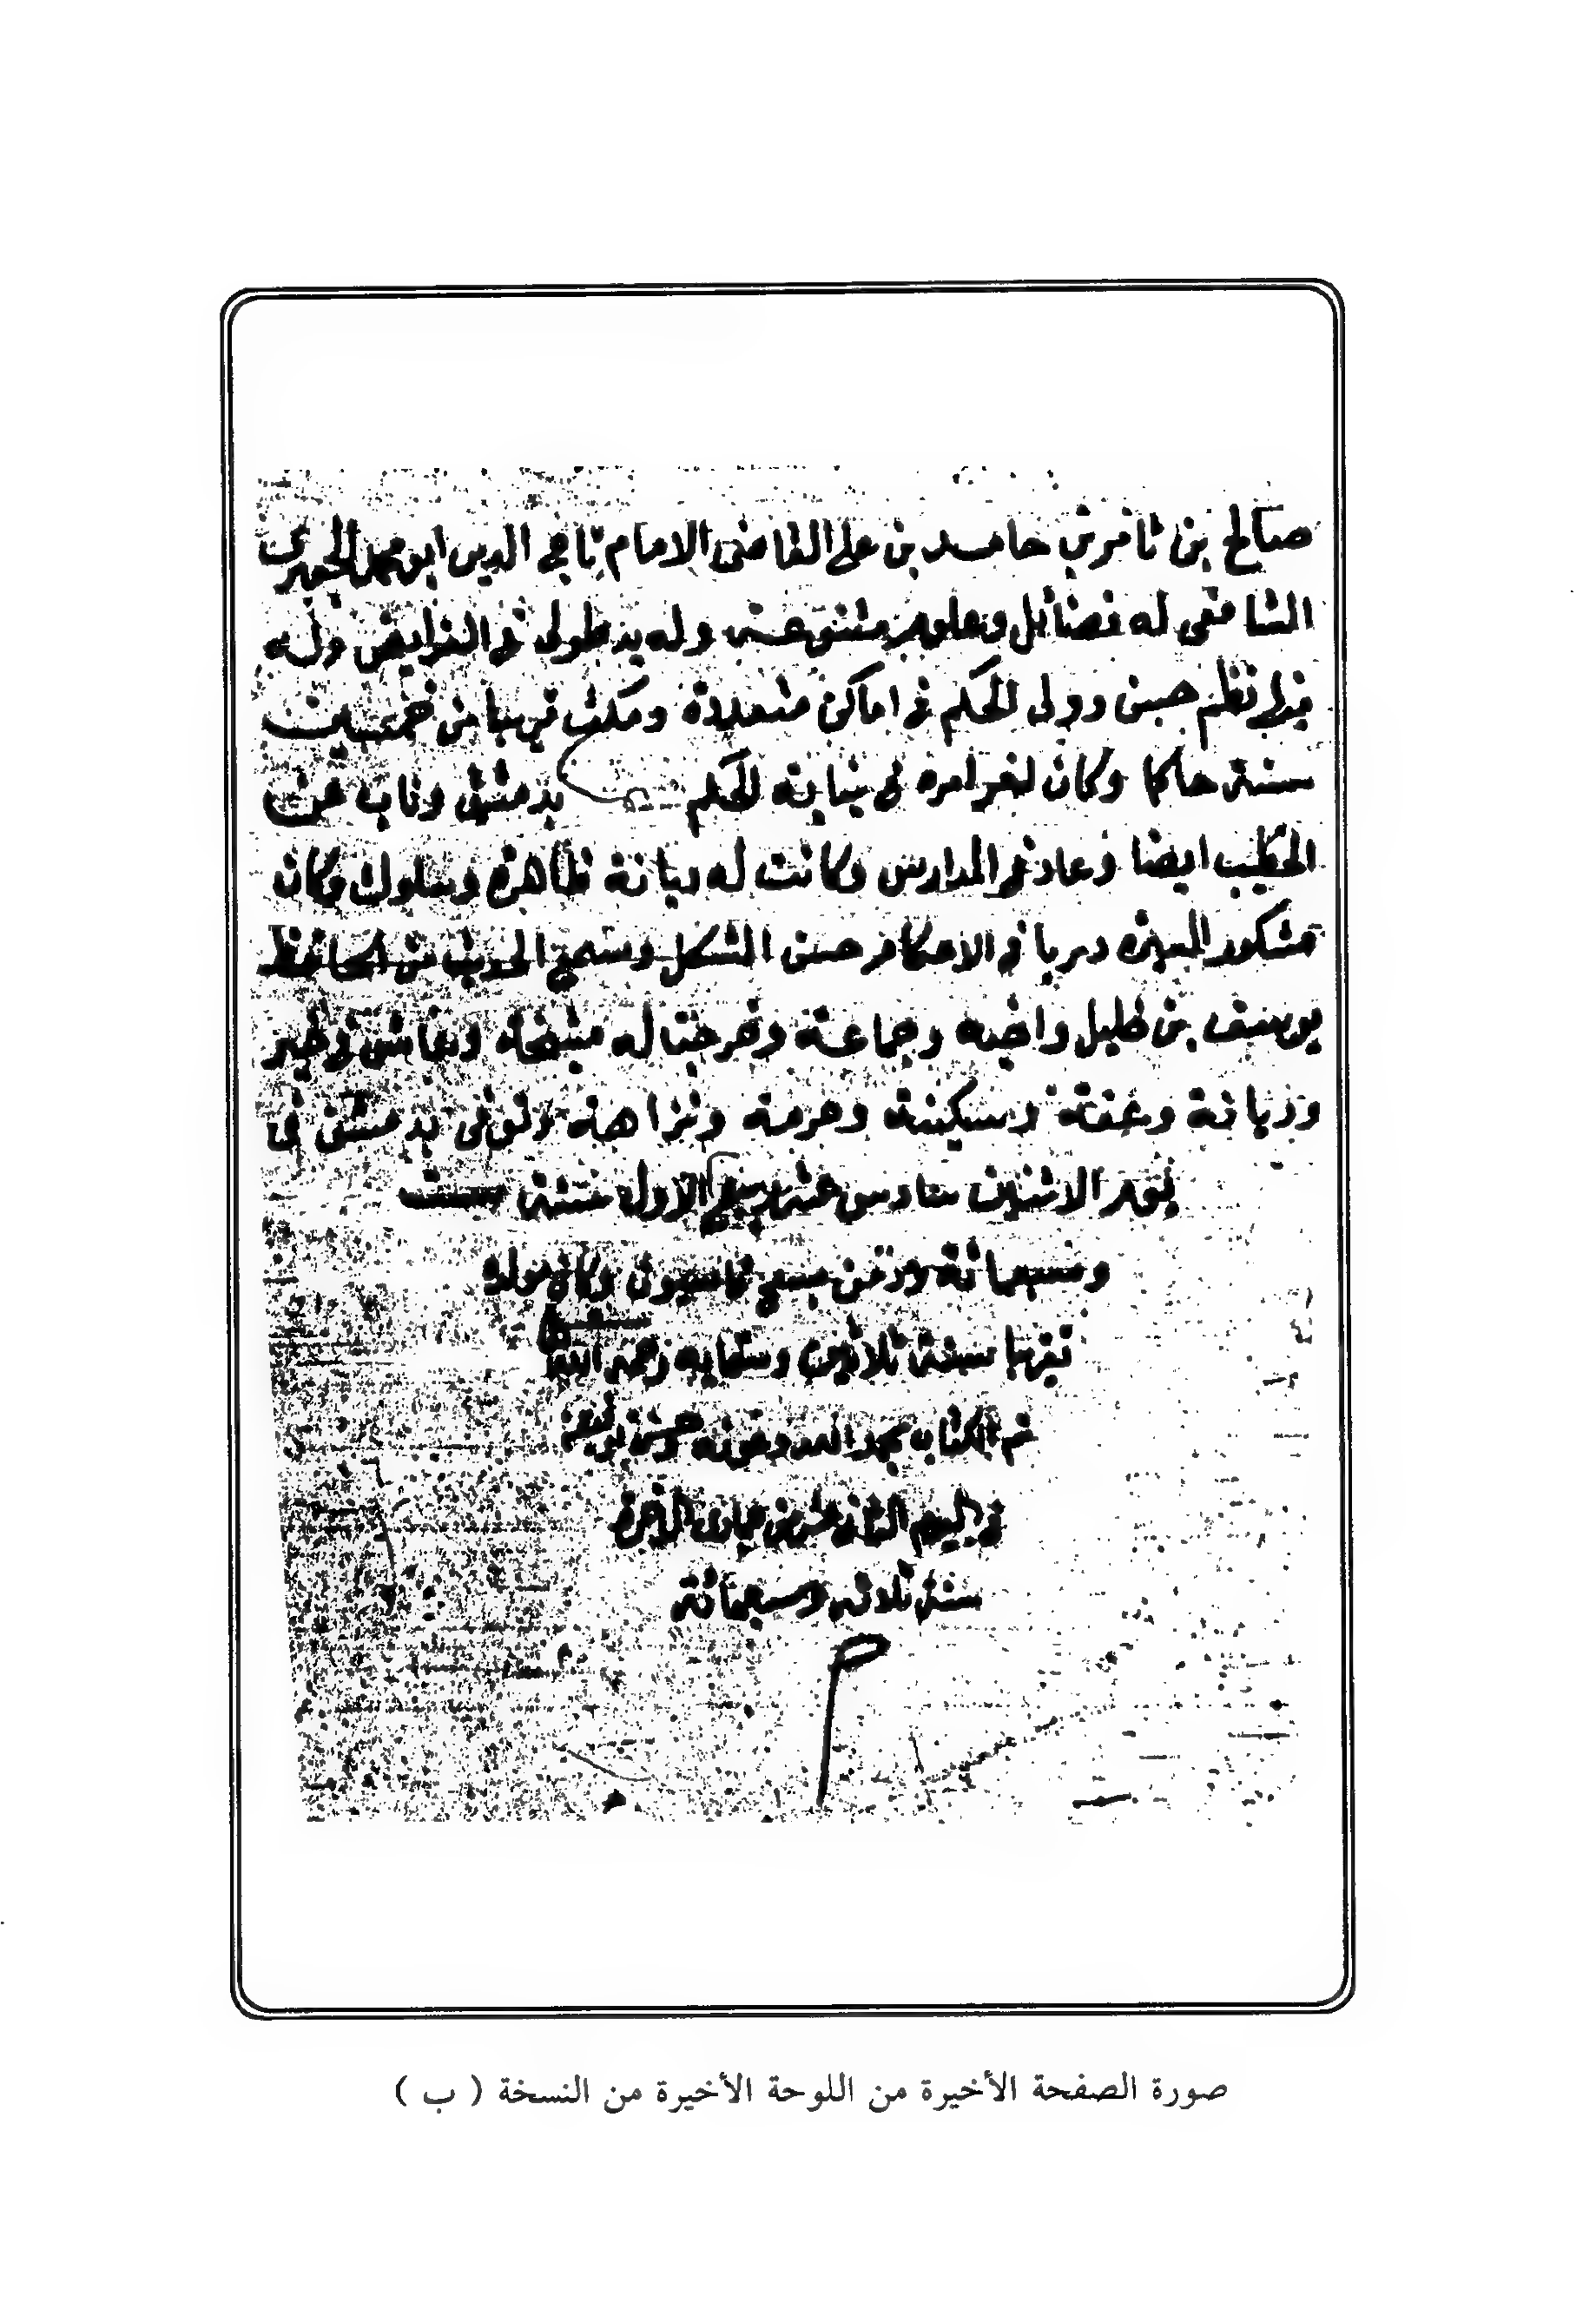 صالح بن ثامر بن حامد بن على القاضى الامام تاج الدين ابو محمد الجعبرى
الشافعى له فضائل وعلوم متنوعة وله يد طولى فى الفرايض وله
فيها نظم حسن وولى الحكم فى اماكن متعددة ومكث قريبا من خمسين
سنة حاكما وكان اخر امره فى نيابة الحكم بدمشق وناب عن
الخطيب ايضا وعاد فى المدارس وكانت له ديانة ظاهرة وسلوك وكان
مشكور السيرة دربا فى الاحكام حسن الشكل وسمع الحديث من الحافظ
يوسف بن خليل واخيه وجماعة وخرجنا له مشيخة وعاش فى خير
وديانة وعفة وسكينة وحرمة ونزاهة وتوفى بدمشق فى
يوم الاثنين سادس عشر ربيع الاول سنة ست
وسبعمائة ودفن بسفح قاسيون وكان مولده
تقريبا سنة ثلاثين وستمايه رحمه الله
تم الكتاب بحمد الله وعونه وحسن توفيقه
فى اليوم الثانى عشر من جمادى الاخرة
سنة وسبعمائة
صورة الصفحة الأخيرة من اللوحة الأخيرة من النسخة ( ب )